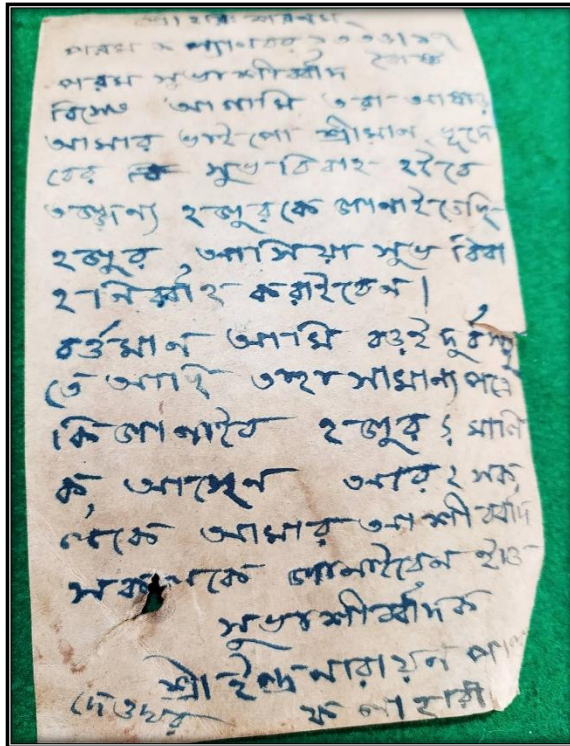 শ্রী হরি শরনম্
পরম সুভাশীর্ব্বাদ
বিসেত আগামি ৩রা আষাঢ়
আমার ভাইপো শ্রীমান
বের সুভ বিবাহ হইবে
তজ্জন্য হজুরকে জানাইতেছি
হজুর আসিয়া সুভ বিবা
হ নির্ব্বাহ করাইবেন।
বর্ত্তমান আমি বড়ই দুর্ব্বস্থা
তে আছি তাহা সামান্য পত্রে
কি জানাইব হজুর ১ মানি
ক, আছেন আর ২ সক
লকে আমার আশীর্ব্বাদ
সকলকে জানাইবেন ইতি
সুভাশীর্ব্বাদক
শ্রী ইন্দ্র নারায়ন
দেওঘর ফলাহারী